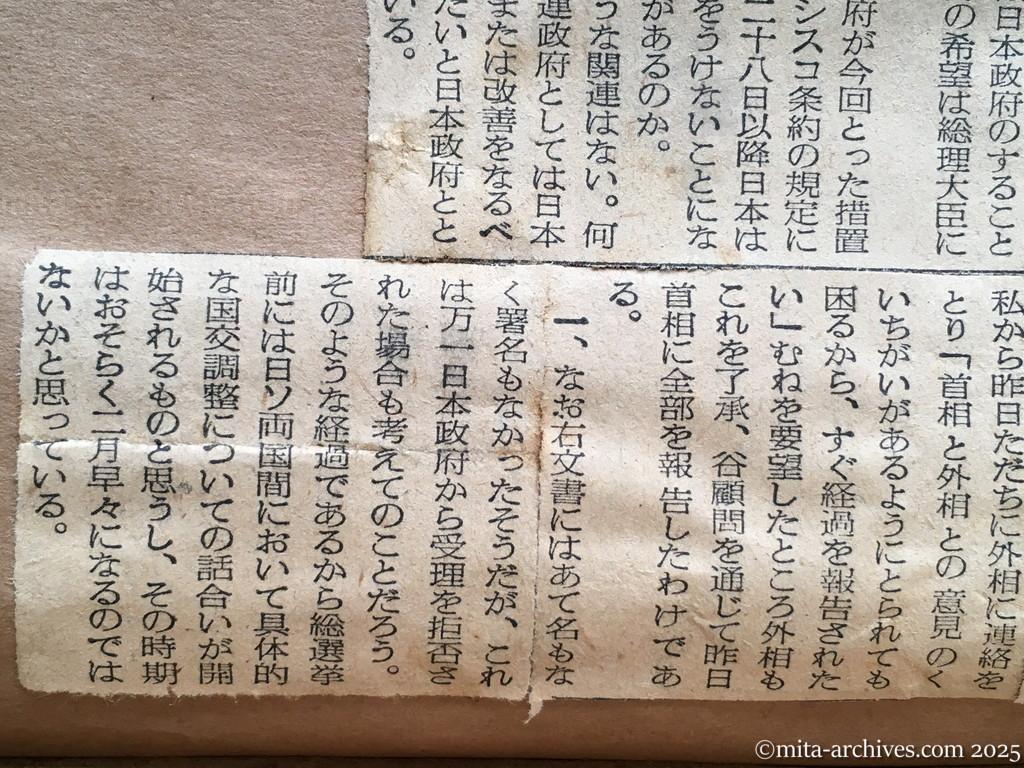 日本政府のすること
の希望は総理大臣に
府が今回とった措置
シスコ条約の規定に
二十八日以降日本は
をうけないことにな
があるのか。
うな関連はない。何
連政府としては日本
または改善をなるべ
たいと日本政府とと
いる。
私から昨日ただちに外相に連絡を
とり「首相と外相との意見のく
いちがいがあるようにとられても
困るから、すぐ経過を報告された
い」むねを要望したところ外相も
これを了承、谷顧問を通じて昨日
首相に全部を報告したわけであ
る。
一、なお右文書にはあて名もな
く署名もなかったそうだが、これ
は万一日本政府から受理を拒否さ
れた場合も考えてのことだろう。
そのような経過であるから総選挙
前には日ソ両国間において具体的
な国交調整についての話合いが開
始されるものと思うし、その時期
はおそらく二月早々になるのでは
ないかと思っている。
©mita-archives.com 2025